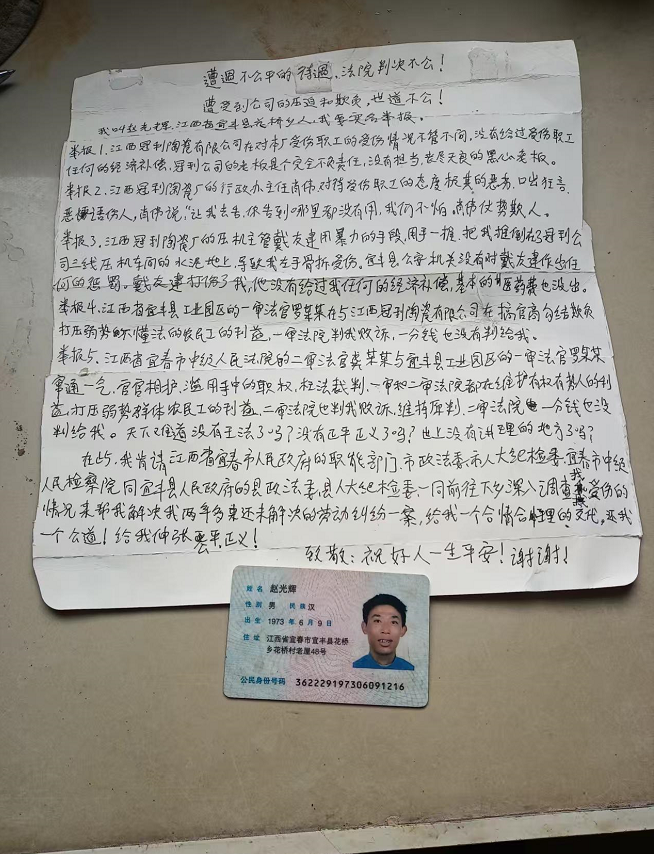 遭遇不公平的待遇、法院判决不公！
遭受到公司的压迫和欺负，世道不公！
我叫赵光辉，江西省宜丰县花桥乡人，我要实名举报。
举报1、江西冠利陶瓷有限公司在对本厂受伤职工的受伤情况不管不问，没有给过受伤职工
任何的经济补偿，冠利公司的老板是个完全不负责任，没有担当，丧尽天良的黑心老板。
举报2、江西冠利陶瓷厂的行政办主任肖伟，对待受伤职工的态度极其的恶劣，口出狂言，
恶语伤人，肖伟说，"让我去告，你告到哪里都没有用，我们不怕。肖伟仗势欺人。
举报3、江西冠利陶瓷厂的压机主管戴友建用暴力的手段，用手一推，把我推倒在了冠利公
司三线压机车间的水泥地上，导致我左手骨折受伤。宜丰县公安机关没有对戴友建作出任
何的惩罚，戴友建打伤了我，他没有给过我任何的经济补偿，基本的医药费也没出。
举报4、江西省宜丰县工业园区的一审法官罗某某在与江西冠利陶瓷有限公司在搞官商勾结欺负
打压弱势不懂法的农民工的利益，一审法院判我败诉，一分钱也没有判给我。
举报5、江西省宜春市中级人民法院的二审法官龚某某与宜丰县工业园区的一审法官罗某某
串通一气，官官相护，滥用手中的职权，枉法裁判，一审和二审法院都在维护有权有势人的利
益，打压弱势群体农民工的利益，二审法院也判我败诉，维持原判，二审法院一分钱也没
判给我。天下难道没有王法了吗？没有公平正义了吗？世上没有讲理的地方了吗？
在此，我肯请江西省宜春市人民政府的职能部门，市政法委市人大纪检委，宜春市中级
人民检察院，同宜丰县人民政府的县政法委县人大纪检委一同前往下乡深入调查我受伤的
情况，来帮我解决我两年多来还未解决的劳动纠纷一案，给我一个合情合理的交代，还我
一个公道！给我伸张公平正义！
致敬：祝好人一生平安！谢谢！
姓名 赵光辉
性别 男 民族 汉
出生 1973 年 6 月 9 日
住址 江西省宜春市宜丰县花桥
乡花桥村老屋48号
公民身份号码 362229197306091216